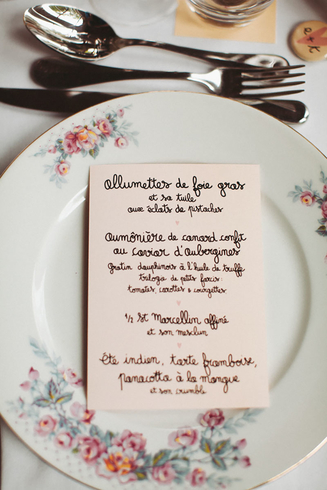 Allumettes de foie gras
et sa tuile
aux éclats de pistaches
Aumônière de canard confit
au caviar d'aubergines
Gratin dauphinois à l'huile de truffe
trilogie de petits farcis
tomates, carottes & courgettes
1/2 St Marcellin affiné
et son mesclun
Eté indien, tarte framboise,
panacotta à la mangue
et son crumble
e+k